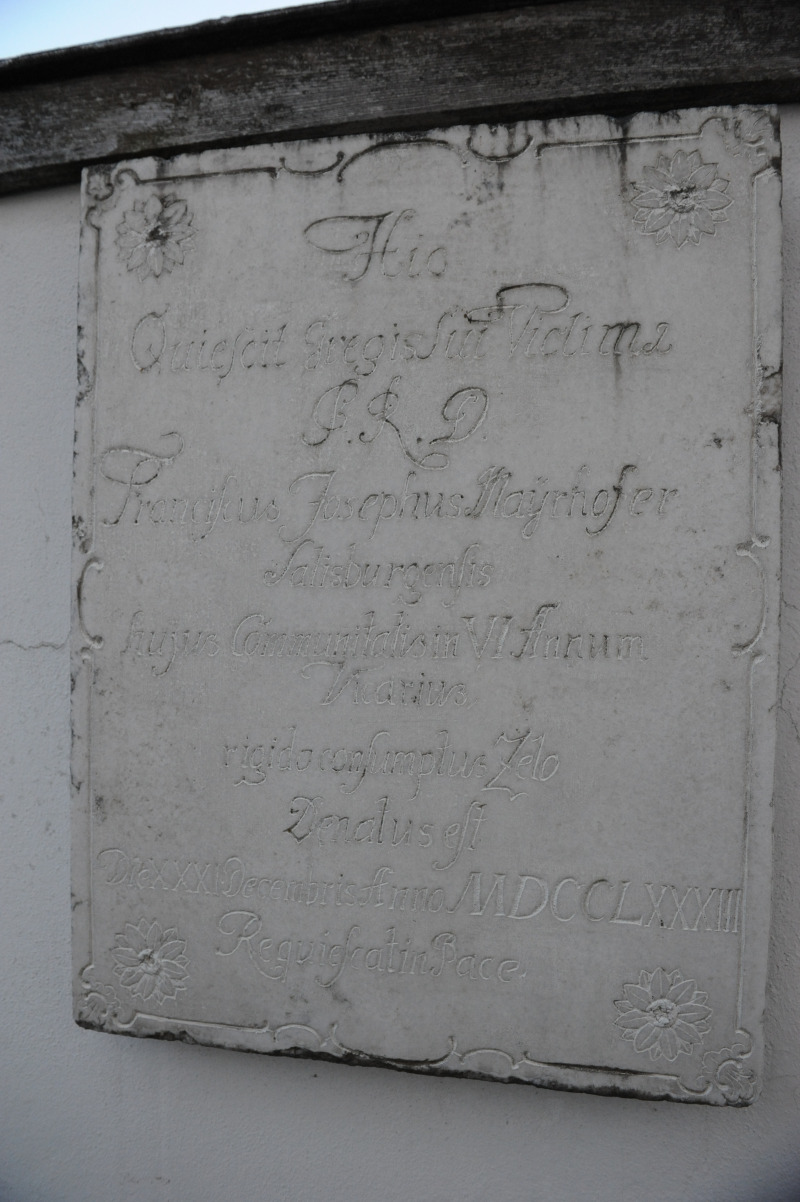 Hic
Quieſcit Gregis Sui Victima
P. R. D.
Franciſcus Josephus Mayrhofer
Salisburgenſis
hujus Communitatis in VI Annum
Vicarius
rigido conſumptus Zelo
Denatus eſt
Die XXXI Decembris Anno MDCCLXXXIII
Requieſcat in Pace